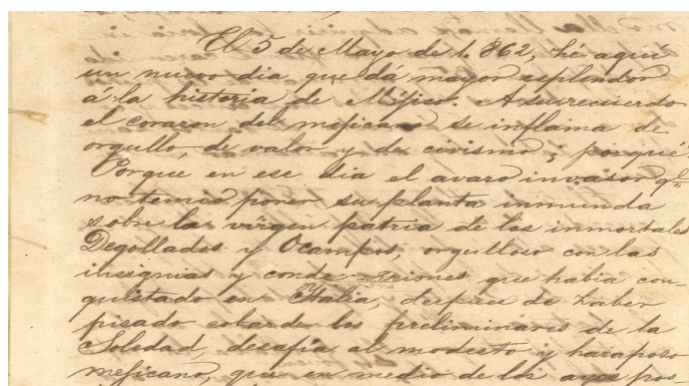 El 5 de Mayo de 1.862, hé aquí
un nuevo dia que dá mayor esplendor
á la historia de Méjico. A su recuerdo
el corazon del mejicano se inflama de
orgullo, de valor y de civismo; porqué?
Porque en ese dia el avaro invasor qe.
no temió poner su planta inmunda
sobre la vírgen patria de los inmortales
Degollados y Ocampos, orgulloso con las
insignias y conde
que habia con-
quistado en Italia, despues de haber
pisado cobarde los preliminares de la
Soledad, desafía al modesto y haraposo
mejicano, que en medio de los ayes pos